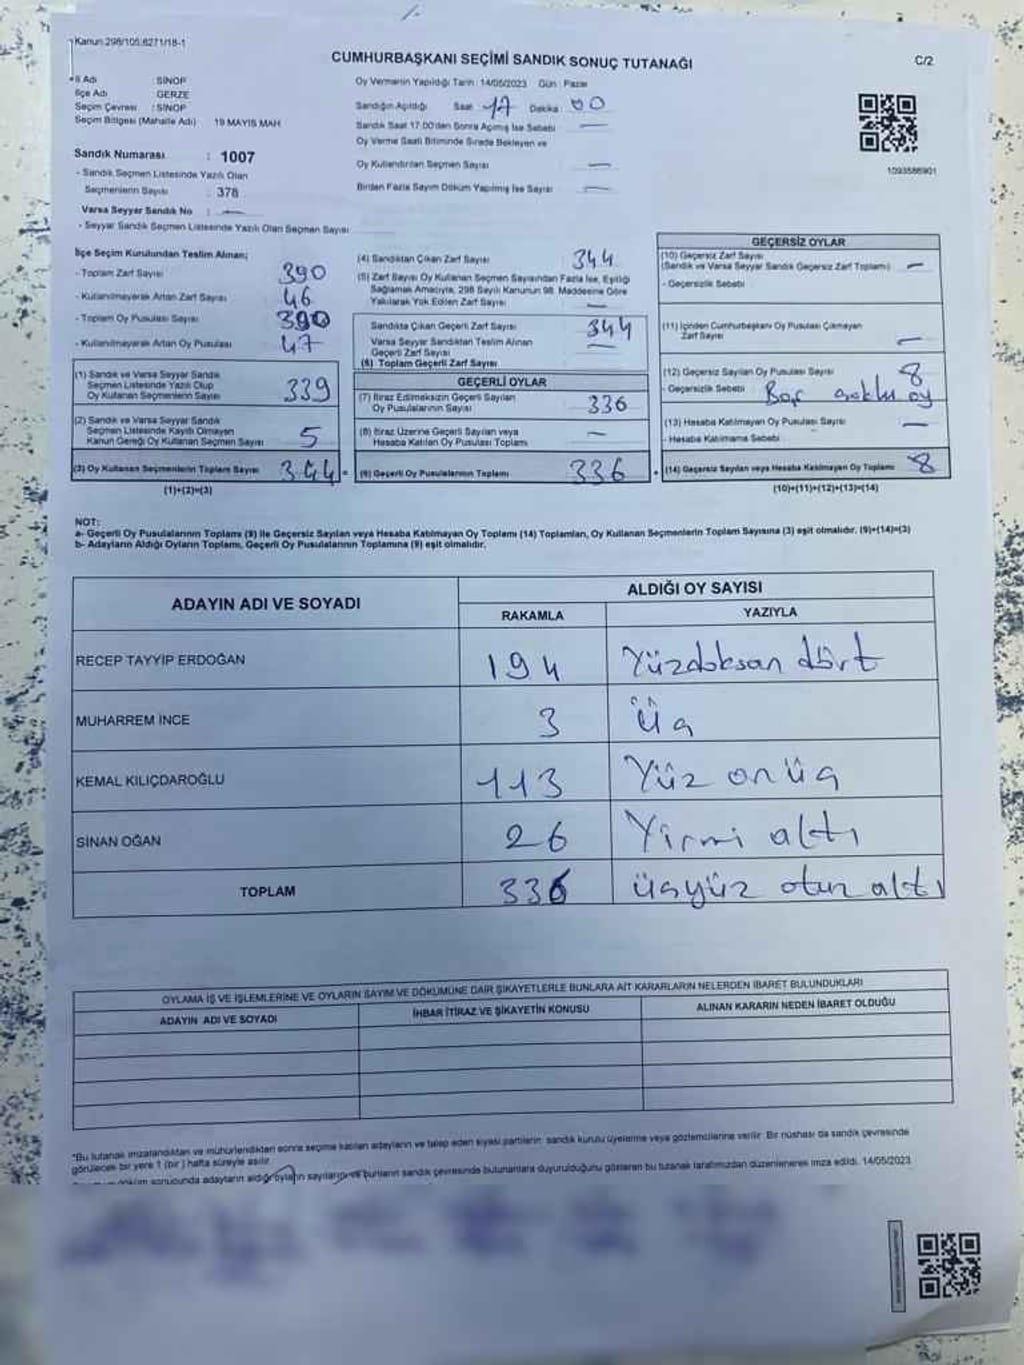 Kanun:298/105,6271/18-1
CUMHURBAŞKANI SEÇİMİ SANDIK SONUÇ TUTANAĞI
C/2
İl Adı : SİNOP
İlçe Adı : GERZE
Seçim Çevresi : SİNOP
Seçim Bölgesi (Mahalle Adı) 19 MAYIS MAH
Sandık Numarası : 1007
- Sandık Seçmen Listesinde Yazılı Olan
Seçmenlerin Sayısı : 378
Varsa Seyyar Sandık No : —
- Seyyar Sandık Seçmen Listesinde Yazılı Olan Seçmen Sayısı
Oy Vermenin Yapıldığı Tarih : 14/05/2023 Gün : Pazar
Sandığın Açıldığı Saat 17 Dakika : 00
Sandık Saat 17.00'den Sonra Açılmış İse Sebebi —
Oy Verme Saati Bitiminde Sırada Bekleyen ve
Oy Kullandırılan Seçmen Sayısı —
Birden Fazla Sayım Döküm Yapılmış İse Sayısı —
1093586901
İlçe Seçim Kurulundan Teslim Alınan;
- Toplam Zarf Sayısı 390
- Kullanılmayarak Artan Zarf Sayısı 46
- Toplam Oy Pusulası Sayısı 390
- Kullanılmayarak Artan Oy Pusulası 47
(1) Sandık ve Varsa Seyyar Sandık
Seçmen Listesinde Yazılı Olup
Oy Kullanan Seçmenlerin Sayısı 339
(2) Sandık ve Varsa Seyyar Sandık
Seçmen Listesinde Kayıtlı Olmayan
Kanun Gereği Oy Kullanan Seçmen Sayısı 5
(3) Oy Kullanan Seçmenlerin Toplam Sayısı 344 =
(1)+(2)=(3)
(4) Sandıktan Çıkan Zarf Sayısı 344
(5) Zarf Sayısı Oy Kullanan Seçmen Sayısından Fazla İse, Eşitliği
Sağlamak Amacıyla, 298 Sayılı Kanunun 98. Maddesine Göre
Yakılarak Yok Edilen Zarf Sayısı —
Sandıkta Çıkan Geçerli Zarf Sayısı 344
Varsa Seyyar Sandıktan Teslim Alınan
Geçerli Zarf Sayısı —
(6) Toplam Geçerli Zarf Sayısı
GEÇERLİ OYLAR
(7) İtiraz Edilmeksizin Geçerli Sayılan
Oy Pusulalarının Sayısı 336
(8) İtiraz Üzerine Geçerli Sayılan veya
Hesaba Katılan Oy Pusulası Toplamı —
(9) Geçerli Oy Pusulalarının Toplamı 336 +
GEÇERSİZ OYLAR
(10) Geçersiz Zarf Sayısı
(Sandık ve Varsa Seyyar Sandık Geçersiz Zarf Toplamı) —
- Geçersizlik Sebebi
(11) İçinden Cumhurbaşkanı Oy Pusulası Çıkmayan
Zarf Sayısı —
(12) Geçersiz Sayılan Oy Pusulası Sayısı 8
- Geçersizlik Sebebi
(13) Hesaba Katılmayan Oy Pusulası Sayısı —
- Hesaba Katılmama Sebebi
(14) Geçersiz Sayılan veya Hesaba Katılmayan Oy Toplamı 8
(10)+(11)+(12)+(13)=(14)
NOT:
a- Geçerli Oy Pusulalarının Toplamı (9) ile Geçersiz Sayılan veya Hesaba Katılmayan Oy Toplamı (14) Toplamları, Oy Kullanan Seçmenlerin Toplam Sayısına (3) eşit olmalıdır. (9)+(14)=(3)
b- Adayların Aldığı Oyların Toplamı, Geçerli Oy Pusulalarının Toplamına (9) eşit olmalıdır.
ADAYIN ADI VE SOYADI
ALDIĞI OY SAYISI
RAKAMLA YAZIYLA
RECEP TAYYİP ERDOĞAN 194 Yüzdoksan dört
MUHARREM İNCE 3 Üç
KEMAL KILIÇDAROĞLU 113 Yüz onüç
SİNAN OĞAN 26 Yirmi altı
TOPLAM 336 üçyüz otuz altı
OYLAMA İŞ VE İŞLEMLERİNE VE OYLARIN SAYIM VE DÖKÜMÜNE DAİR ŞİKAYETLERLE BUNLARA AİT KARARLARIN NELERDEN İBARET BULUNDUKLARI
ADAYIN ADI VE SOYADI İHBAR İTİRAZ VE ŞİKAYETİN KONUSU ALINAN KARARIN NEDEN İBARET OLDUĞU
*Bu tutanak imzalandıktan ve mühürlendikten sonra seçime katılan adayların ve talep eden siyasi partilerin sandık kurulu üyelerine veya gözlemcilerine verilir. Bir nüshası da sandık çevresinde
görülecek bir yere 1 (bir) hafta süreyle asılır.
döküm sonucunda adayların aldığı oyların sayılarını ve bunların sandık çevresinde bulunanlara duyurulduğunu gösteren bu tutanak tarafımızdan düzenlenerek imza edildi. 14/05/2023